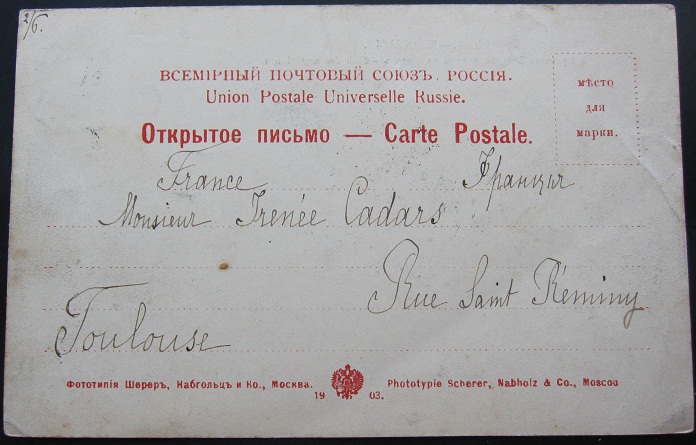 2/6.
ВСЕМІРНЫЙ ПОЧТОВЫЙ СОЮЗЪ. РОССІЯ.
Union Postale Universelle Russie.
мѣсто
для
марки.
Открытое письмо — Carte Postale.
France Франція
Monsieur Irenée Cadars
Rue Saint Réminy
Toulouse
Фототипія Шереръ, Набгольцъ и Ко., Москва. Phototypie Scherer, Nabholz & Co., Moscou
19 03.